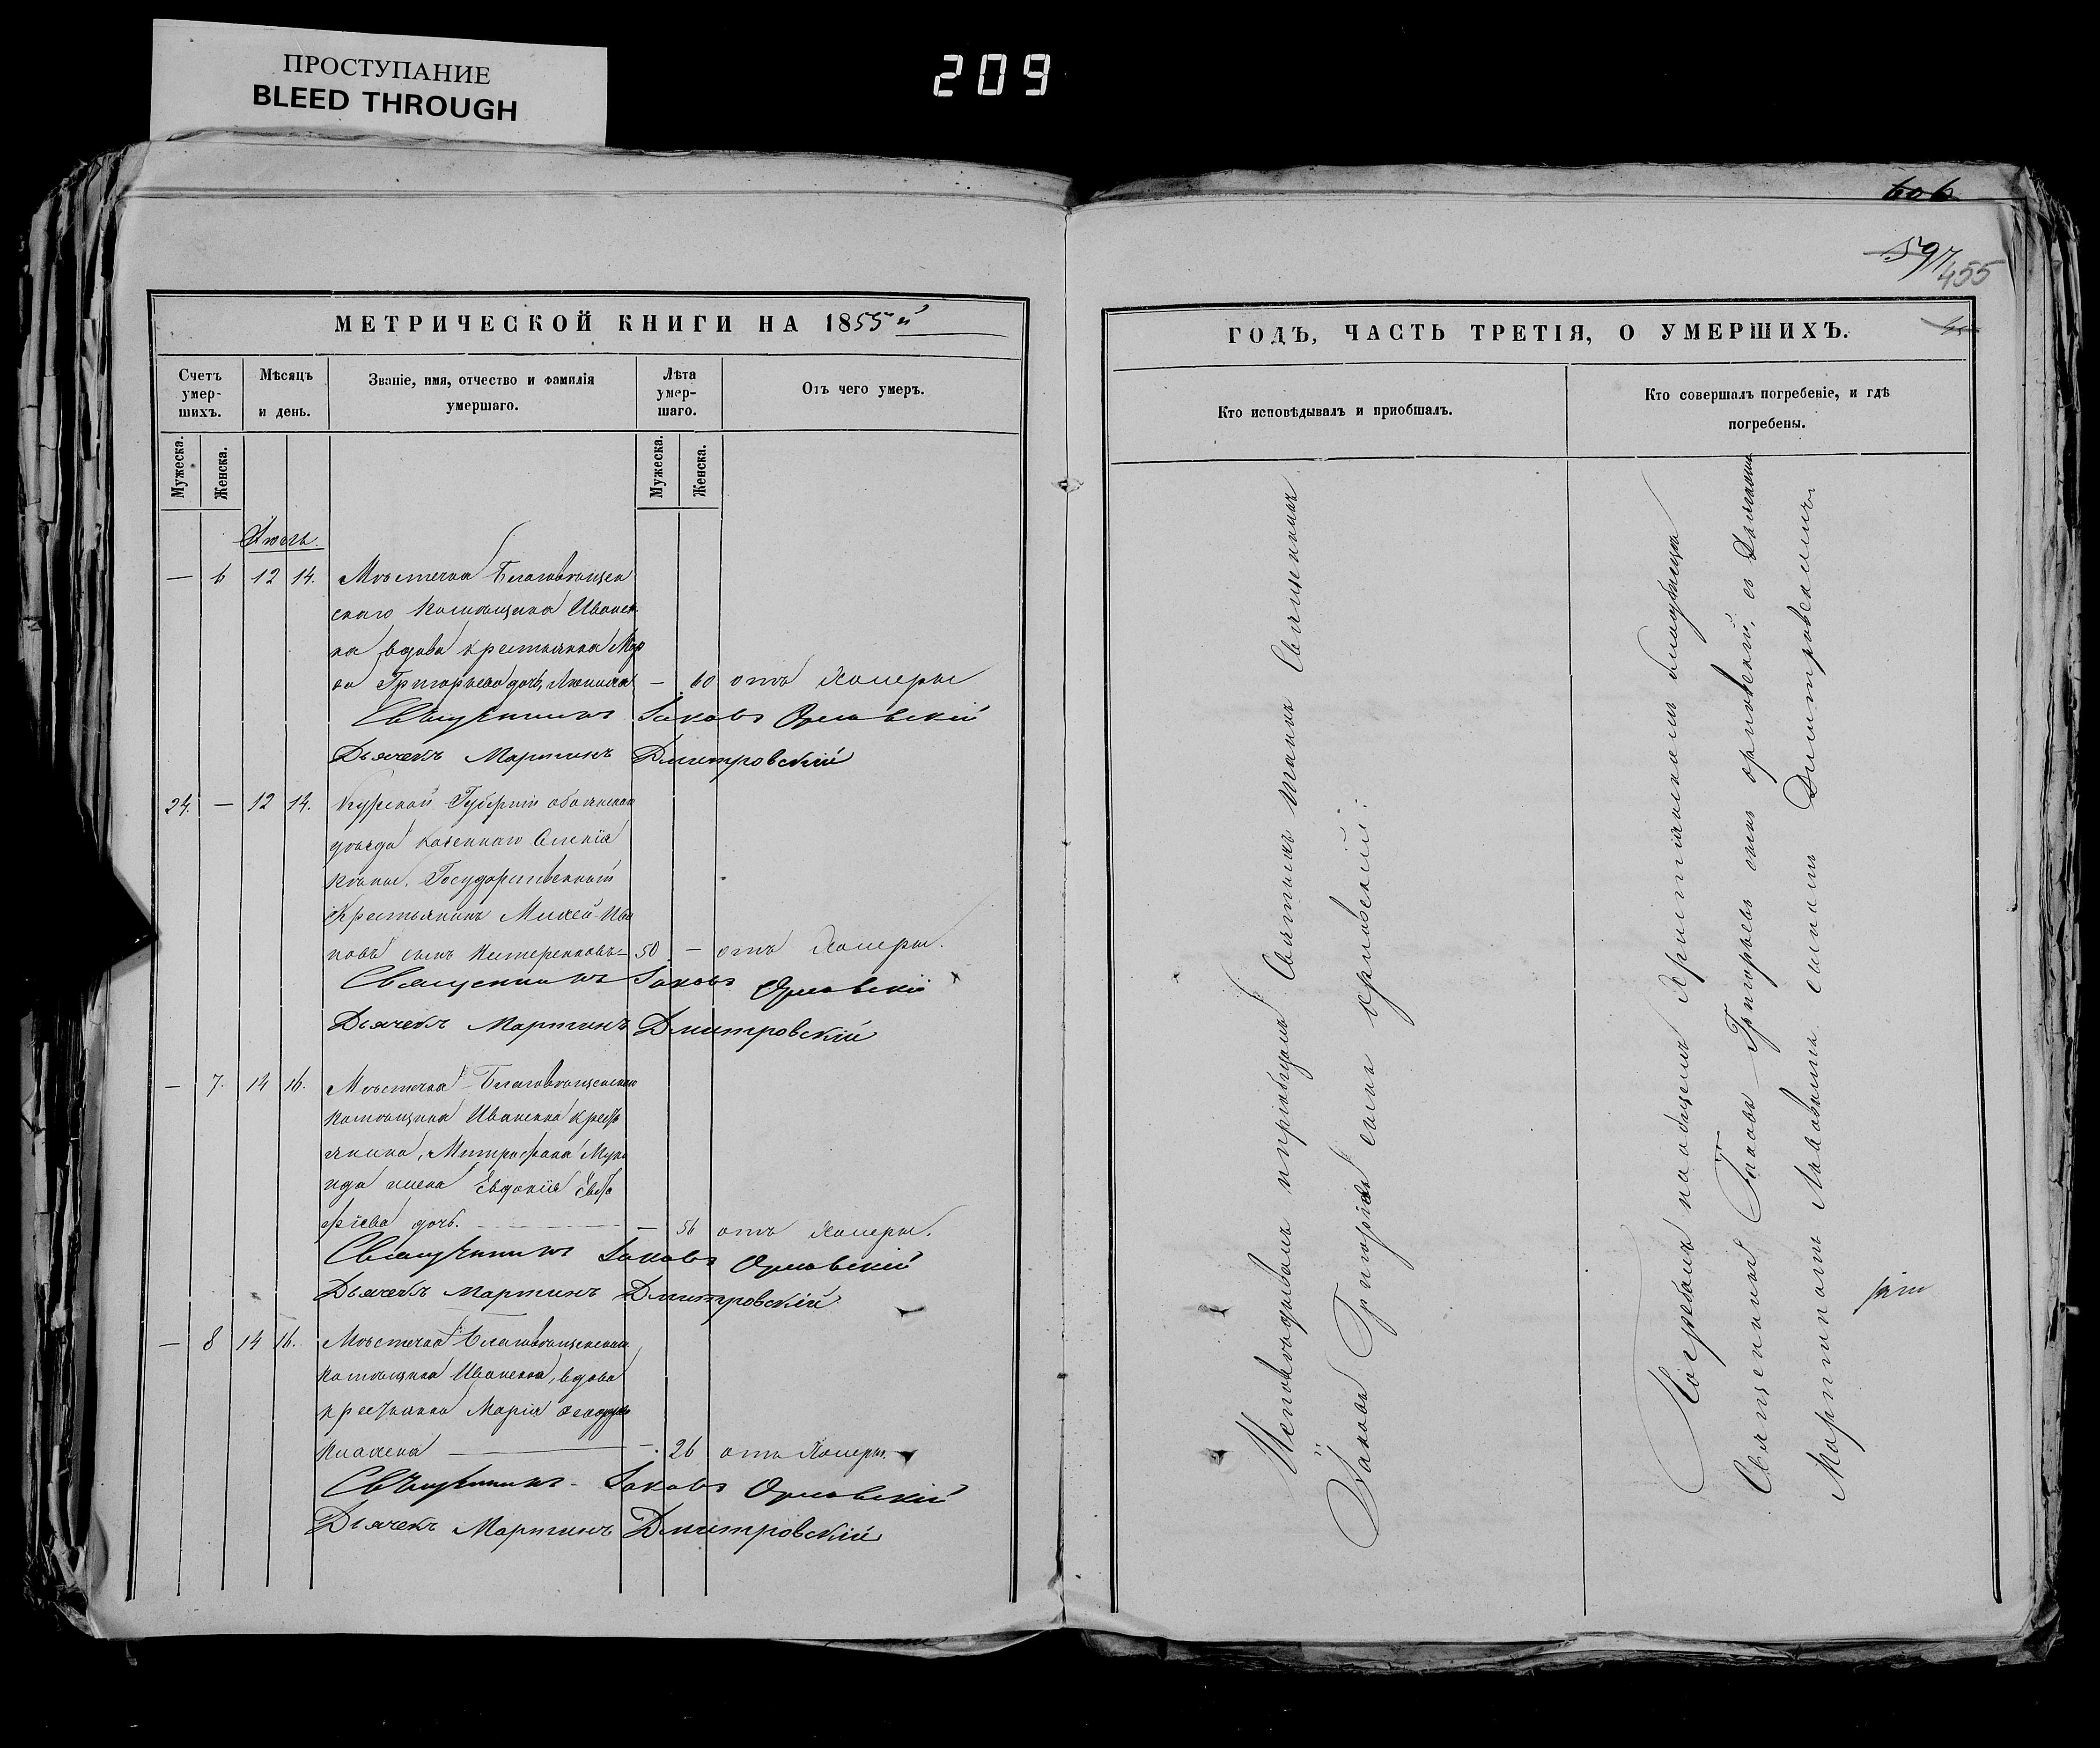 ПРОСТУПАНИЕ
BLEED THROUGH
209
606
597
455
МЕТРИЧЕСКОЙ КНИГИ НА 1855й
Счетъ умер-шихъ.
Мѣсяцъ и день.
Званіе, имя, отчество и фамилія умершаго.
Лѣта умер-шаго.
Отъ чего умеръ.
Мужеска.
Женска.
Мужеска.
Женска.
— 6 12 14. Мѣстечка Благовѣщен
скаго помѣщика Иванен
ка вдова крестьянка
Григорьева дочь — 60 отъ холеры
Священникъ Іаковъ Орловскій
Дьячекъ Мартинъ Дмитровскій
24. — 12 14. Курской Губерніи обоянскаго
уѣзда казеннаго Селенія
Государственный
Крестьянинъ Ива
новъ сынъ Нестеренковъ — 50 — отъ холеры.
Священникъ Іаковъ Орловскій
Дьячекъ Мартинъ Дмитровскій
— 7. 14 16. Мѣстечка Благовѣщенскаго
помѣщика Иваненка кресть
янина, Митрофана
жена Евдокія Евста
фіева дочь. — 56 отъ холеры.
Священникъ Іаковъ Орловскій
Дьячекъ Мартинъ Дмитровскій
— 8 14 16. Мѣстечка Благовѣщенскаго
помѣщика Иваненка, вдова
крестьянка Марія
— 26 отъ холеры.
Священникъ Іаковъ Орловскій
Дьячекъ Мартинъ Дмитровскій
ГОДЪ, ЧАСТЬ ТРЕТІЯ, О УМЕРШИХЪ.
Кто исповѣдывалъ и пріобщалъ.
Кто совершалъ погребеніе, и гдѣ погребены.
Исповѣдывалъ Святыхъ Таинъ Священникъ
Іаковъ Григоріевъ сынъ орловскій:
Погребалъ на общемъ Христіанскомъ кладбищѣ
Священникъ Іаковъ Григорьевъ сынъ орловскій, съ Дьячкомъ
Мартиномъ сыномъ Дмитровскимъ